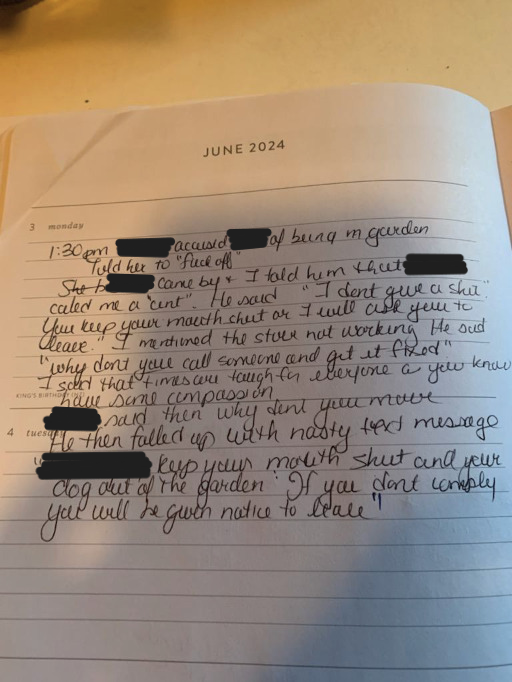 JUNE 2024
3 monday
1:30pm accused of being in garden
Told her to "fuck off"
She came by + I told him that
called me a "cunt". He said "I dont give a shit"
You keep your mouth shut or I will ask you to
leave." I mentioned the stove not working He said
"why dont you call someone and get it fixed"
I said that times are tough for everyone a you know
KING'S BIRTHDAY (NZ) have some compassion
said then why dont you move
4 tuesday
He then followed up with nasty text message
keep your mouth shut and your
dog out of the garden" If you dont comply
you will be given notice to leave"